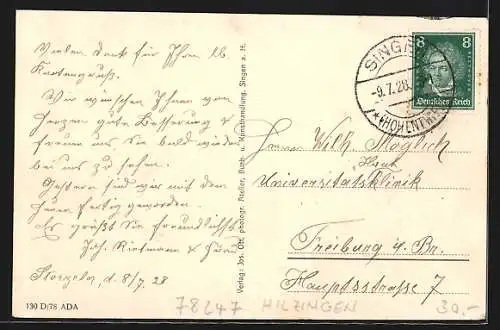 Vielen Dank für Ihren lb.
Kartengruß.
Wir wünschen Ihnen von
Herzen gute Besserung &
freuen uns, Sie bald wieder
bei uns zu sehen.
Gestern sind wir mit dem
Heuen fertig geworden.
Es grüßt Sie freundlichst
Joh. Rietmann &
Storzeln, d. 8/7. 28
130 D/78 ADA
Verlag: Jos. Ott, photogr. Atelier, Buch- u. Kunsthandlung, Singen a. H.
SINGEN
-9.7.28.
(HOHENTWIEL)
8 8
Deutsches Reich
Herrn Wilh. Möglich
Haut
Universitätsklinik
Freiburg i. Br.
Hauptsstrasse 7
78247 HILZINGEN 30,-